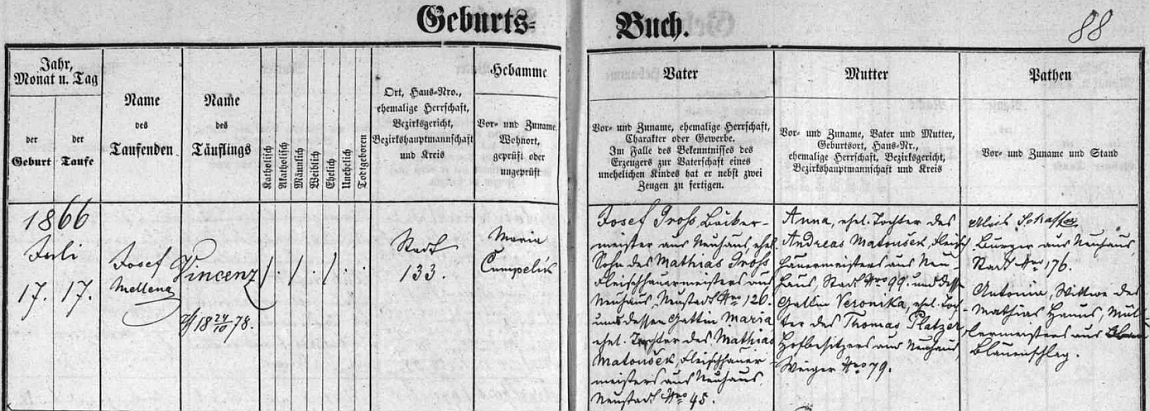 Geburts-Buch.
88
Jahr,
Monat u. Tag
der
Geburt
der
Taufe
Name
des
Taufenden
Name
des
Täuflings
Katholisch
Akatholisch
Männlich
Weiblich
Ehelich
Unehelich
Todtgeboren
Ort, Haus-Nro.,
ehemalige Herrschaft,
Bezirksgericht,
Bezirkshauptmannschaft
und Kreis
Hebamme
Vor- und Zuname
Wohnort,
geprüft oder
ungeprüft
Vater
Vor- und Zuname, ehemalige Herrschaft,
Charakter oder Gewerbe.
Im Falle des Bekenntnisses des
Erzeugers zur Vaterschaft eines
unehelichen Kindes hat er nebst zwei
Zeugen zu fertigen.
Mutter
Vor- und Zuname, Vater und Mutter,
Geburtsort, Haus-Nr.,
ehemalige Herrschaft, Bezirksgericht,
Bezirkshauptmannschaft und Kreis
Pathen
Vor- und Zuname und Stand
1866
Juli
17. 17.
Josef
Mellenz
Vincenz
18 24/10 78.
/. / . / .
Stadt
133.
Maria
Cumpelik
Josef Groß, Bäcker-
meister aus Neuhaus, ehel.
Sohn des Mathias Groß
Fleischhauermeisters aus
Neuhaus, Neustadt Nro 126.
und dessen Gattin Maria
ehel. Tochter des Mathias
Matoušek, Fleischhauer-
meisters aus Neuhaus
Neustadt Nro 45.
Anna, ehel. Tochter des
Andreas Matoušek, Fleisch-
hauermeisters aus Neu-
haus, Stadt Nro 99. und dessen
Gattin Veronika, ehel. Toch-
ter des Thomas Platzer
Hofbesitzers aus Neuhaus,
Weiger Nro 79.
Alois Schaffer
Bürger aus Neuhaus,
Stadt Nr 176.
Antonia, Wittwe des
Mathias Hanus, Mül-
lermeisters aus
Blauenschlag.